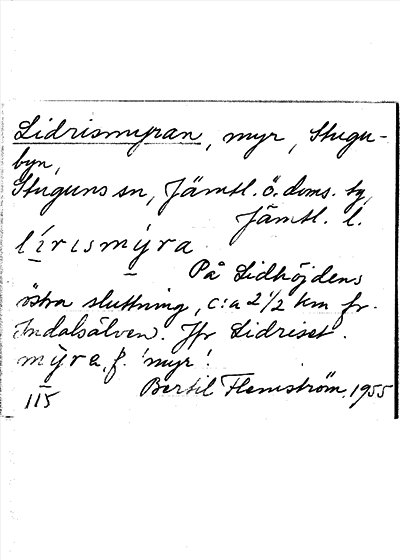 Lidrismyran, myr, Stugu-
byn,
Stuguns sn, Jämtl. ö. doms. tg,
Jämtl. l.
lírısmỳra
På Lidhöjdens
östra sluttning, c:a 2 1/2 km fr.
Indalsälven. Jfr Lidriset.
mỳra, f. 'myr'.
115 Bertil Flemström, 1955